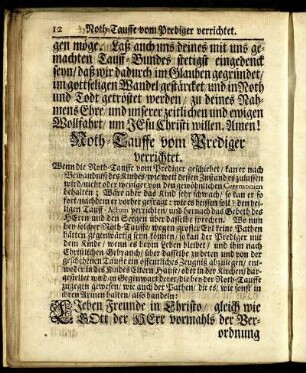 12 Noth-Tauffe vom Prediger verrichtet.
gen möge. Laß auch uns deines mit uns ge-
machten Tauff-Bundes stetigst eingedenck
seyn/ daß wir dadurch im Glauben gegründet/
im gottseligen Wandel gestärcket/ und in Noth
und Todt getröstet werden/ zu deines Nah-
mens Ehre/ und unserer zeitlichen und ewigen
Wollfahrt/ um JEsu Christi willen. Amen!
Noth-Tauffe vom Prediger
verrichtet.
Wenn die Noth-Tauffe vom Prediger geschiehet/ kan er nach
Bewandniß des Kindes/ wie weit dessen Zustand es zulassen
wird/ mehr oder weniger von den gewöhnlichen Ceremonien
behalten; Wäre aber das Kind sehr schwach/ so kan er so
fort/ nachdem er vorher gefragt: wie es heissen soll? den hei-
ligen Tauff-Actum verrichten/ und hernach das Gebeth des
HErrn und den Seegen über dasselbe sprechen. Wo nun
bey solcher Noth-Tauffe wegen grosser Eyl keine Pathen
hätten gegenwärtig seyn können/ so kan der Prediger mit
dem Kinde/ wenn es beym Leben bleibet/ und ihm nach
Christlichen Gebrauch/ über dasselbe zu beten und von der
geschehenen Tauffe ein öffentliches Zeugniß abzulegen/ ent-
weder in des Kindes Eltern Hause/ oder in der Kirchen/ dar-
gestellet wird/ in Gegenwart derer/ die bey der Noth-Tauffe
zugegen gewesen/ wie auch der Pathen/ die es/ wie sonst in
ihren Armen halten/ also handeln:
LIeben Freunde in Christo/ gleich wie
GOtt der HErr vormahls der Ver-
ordnung